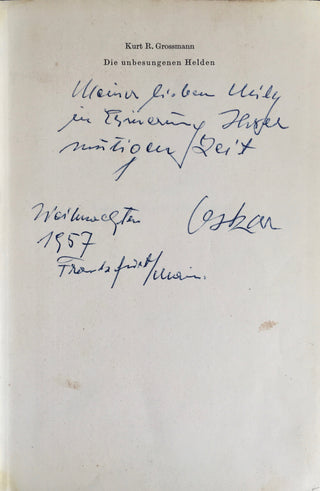 Kurt R. Grossmann
Die unbesungenen Helden
Meiner lieben
in Erinerung
mutigen Zeit
Weihnachten
Oskar
1957
Frankfurt/Main.